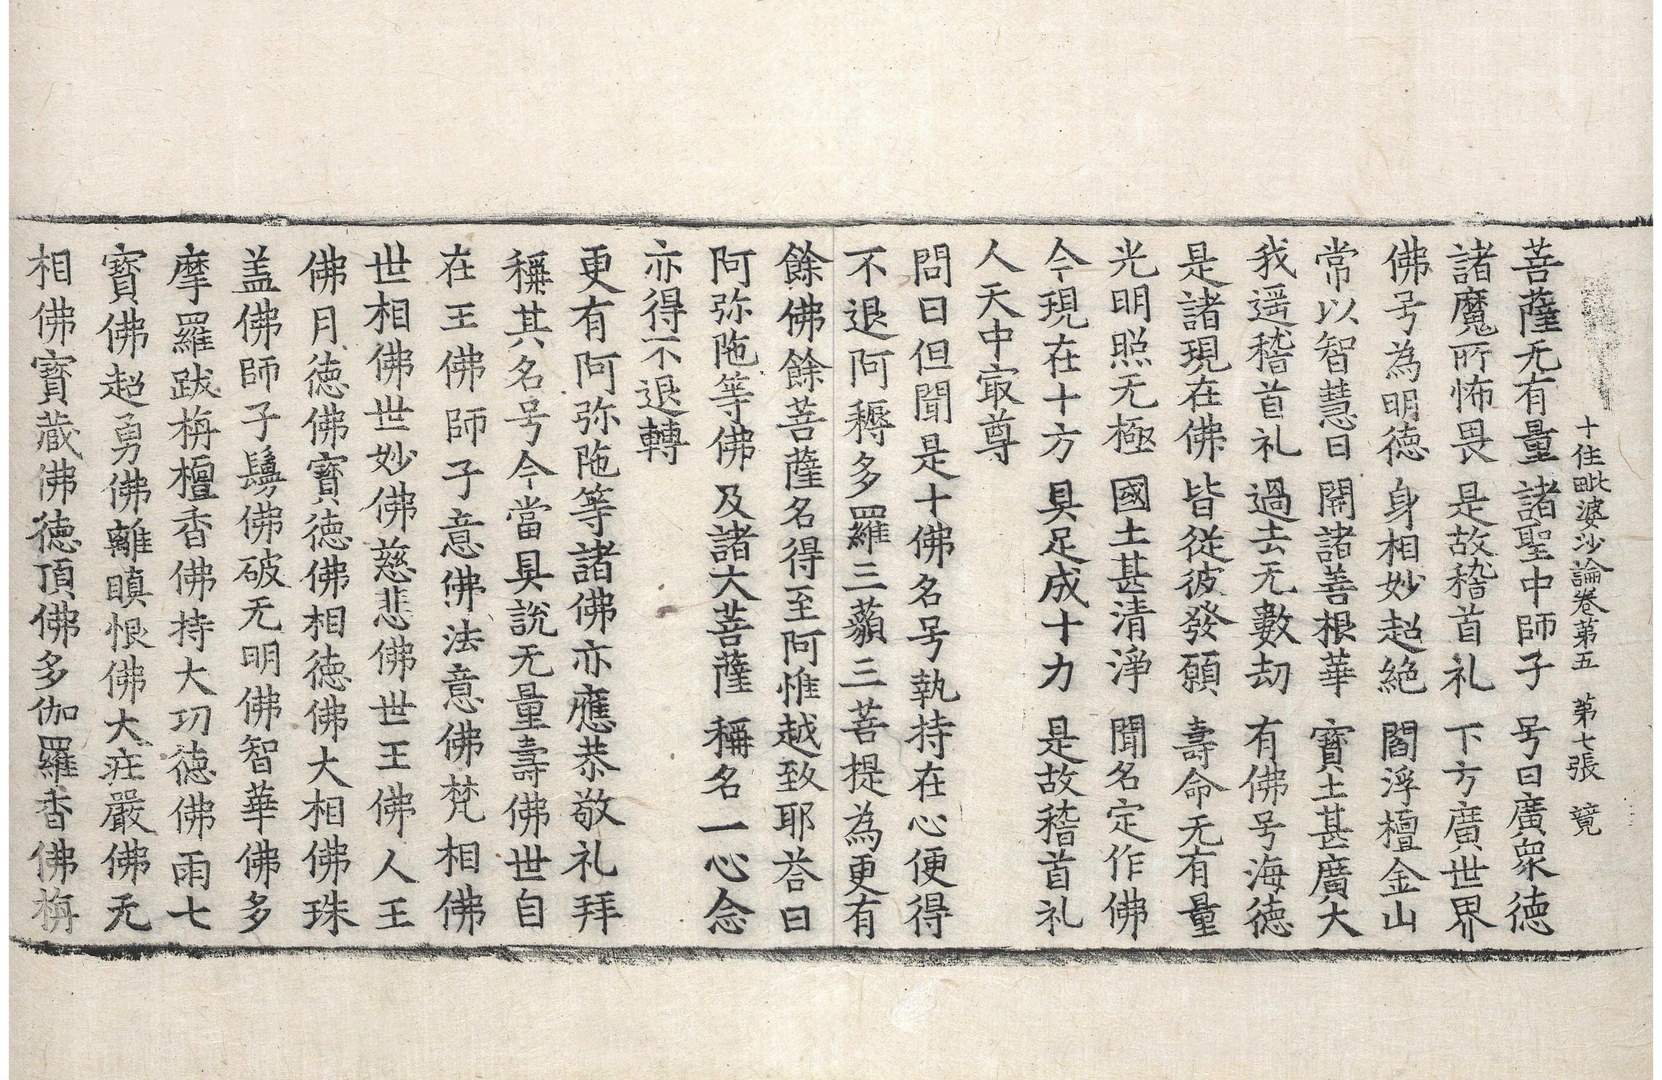 十住毗婆沙論卷第五 第七張 竟
菩薩无有量 諸聖中師子 号曰廣衆德
諸魔所怖畏 是故稽首礼 下方廣世界
佛号為明德 身相妙超絶 閻浮檀金山
常以智慧日 開諸善根華 寶土甚廣大
我遥稽首礼 過去无數劫 有佛号海德
是諸現在佛 皆從彼發願 壽命无有量
光明照无極 國土甚清淨 聞名定作佛
今現在十方 具足成十力 是故稽首礼
人天中㝡尊
問曰但聞是十佛名号執持在心便得
不退阿耨多羅三藐三菩提為更有
餘佛餘菩薩名得至阿惟越致耶荅曰
阿弥陁等佛 及諸大菩薩 稱名一心念
亦得不退轉
更有阿弥陁等諸佛亦應恭敬礼拜
稱其名号今當具說无量壽佛世自
在王佛師子意佛法意佛梵相佛
世相佛世妙佛慈悲佛世王佛人王
佛月德佛寶德佛相德佛大相佛珠
盖佛師子鬘佛破无明佛智華佛多
摩羅跋栴檀香佛持大功德佛雨七
寶佛超勇佛離瞋恨佛大莊嚴佛无
相佛寶藏佛德頂佛多伽羅香佛栴